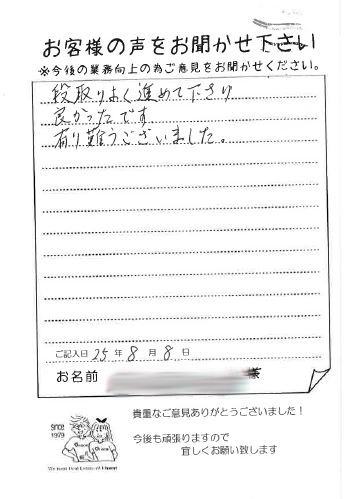 お客様の声をお聞かせ下さい
※今後の業務向上の為ご意見をお聞かせください。
段取りよく進めて下さり
良かったです
有り難うございました。
ご記入日 25 年 8 月 8 日
お名前 様
貴重なご意見ありがとうございました！
今後も頑張りますので
宜しくお願い致します
since
1979